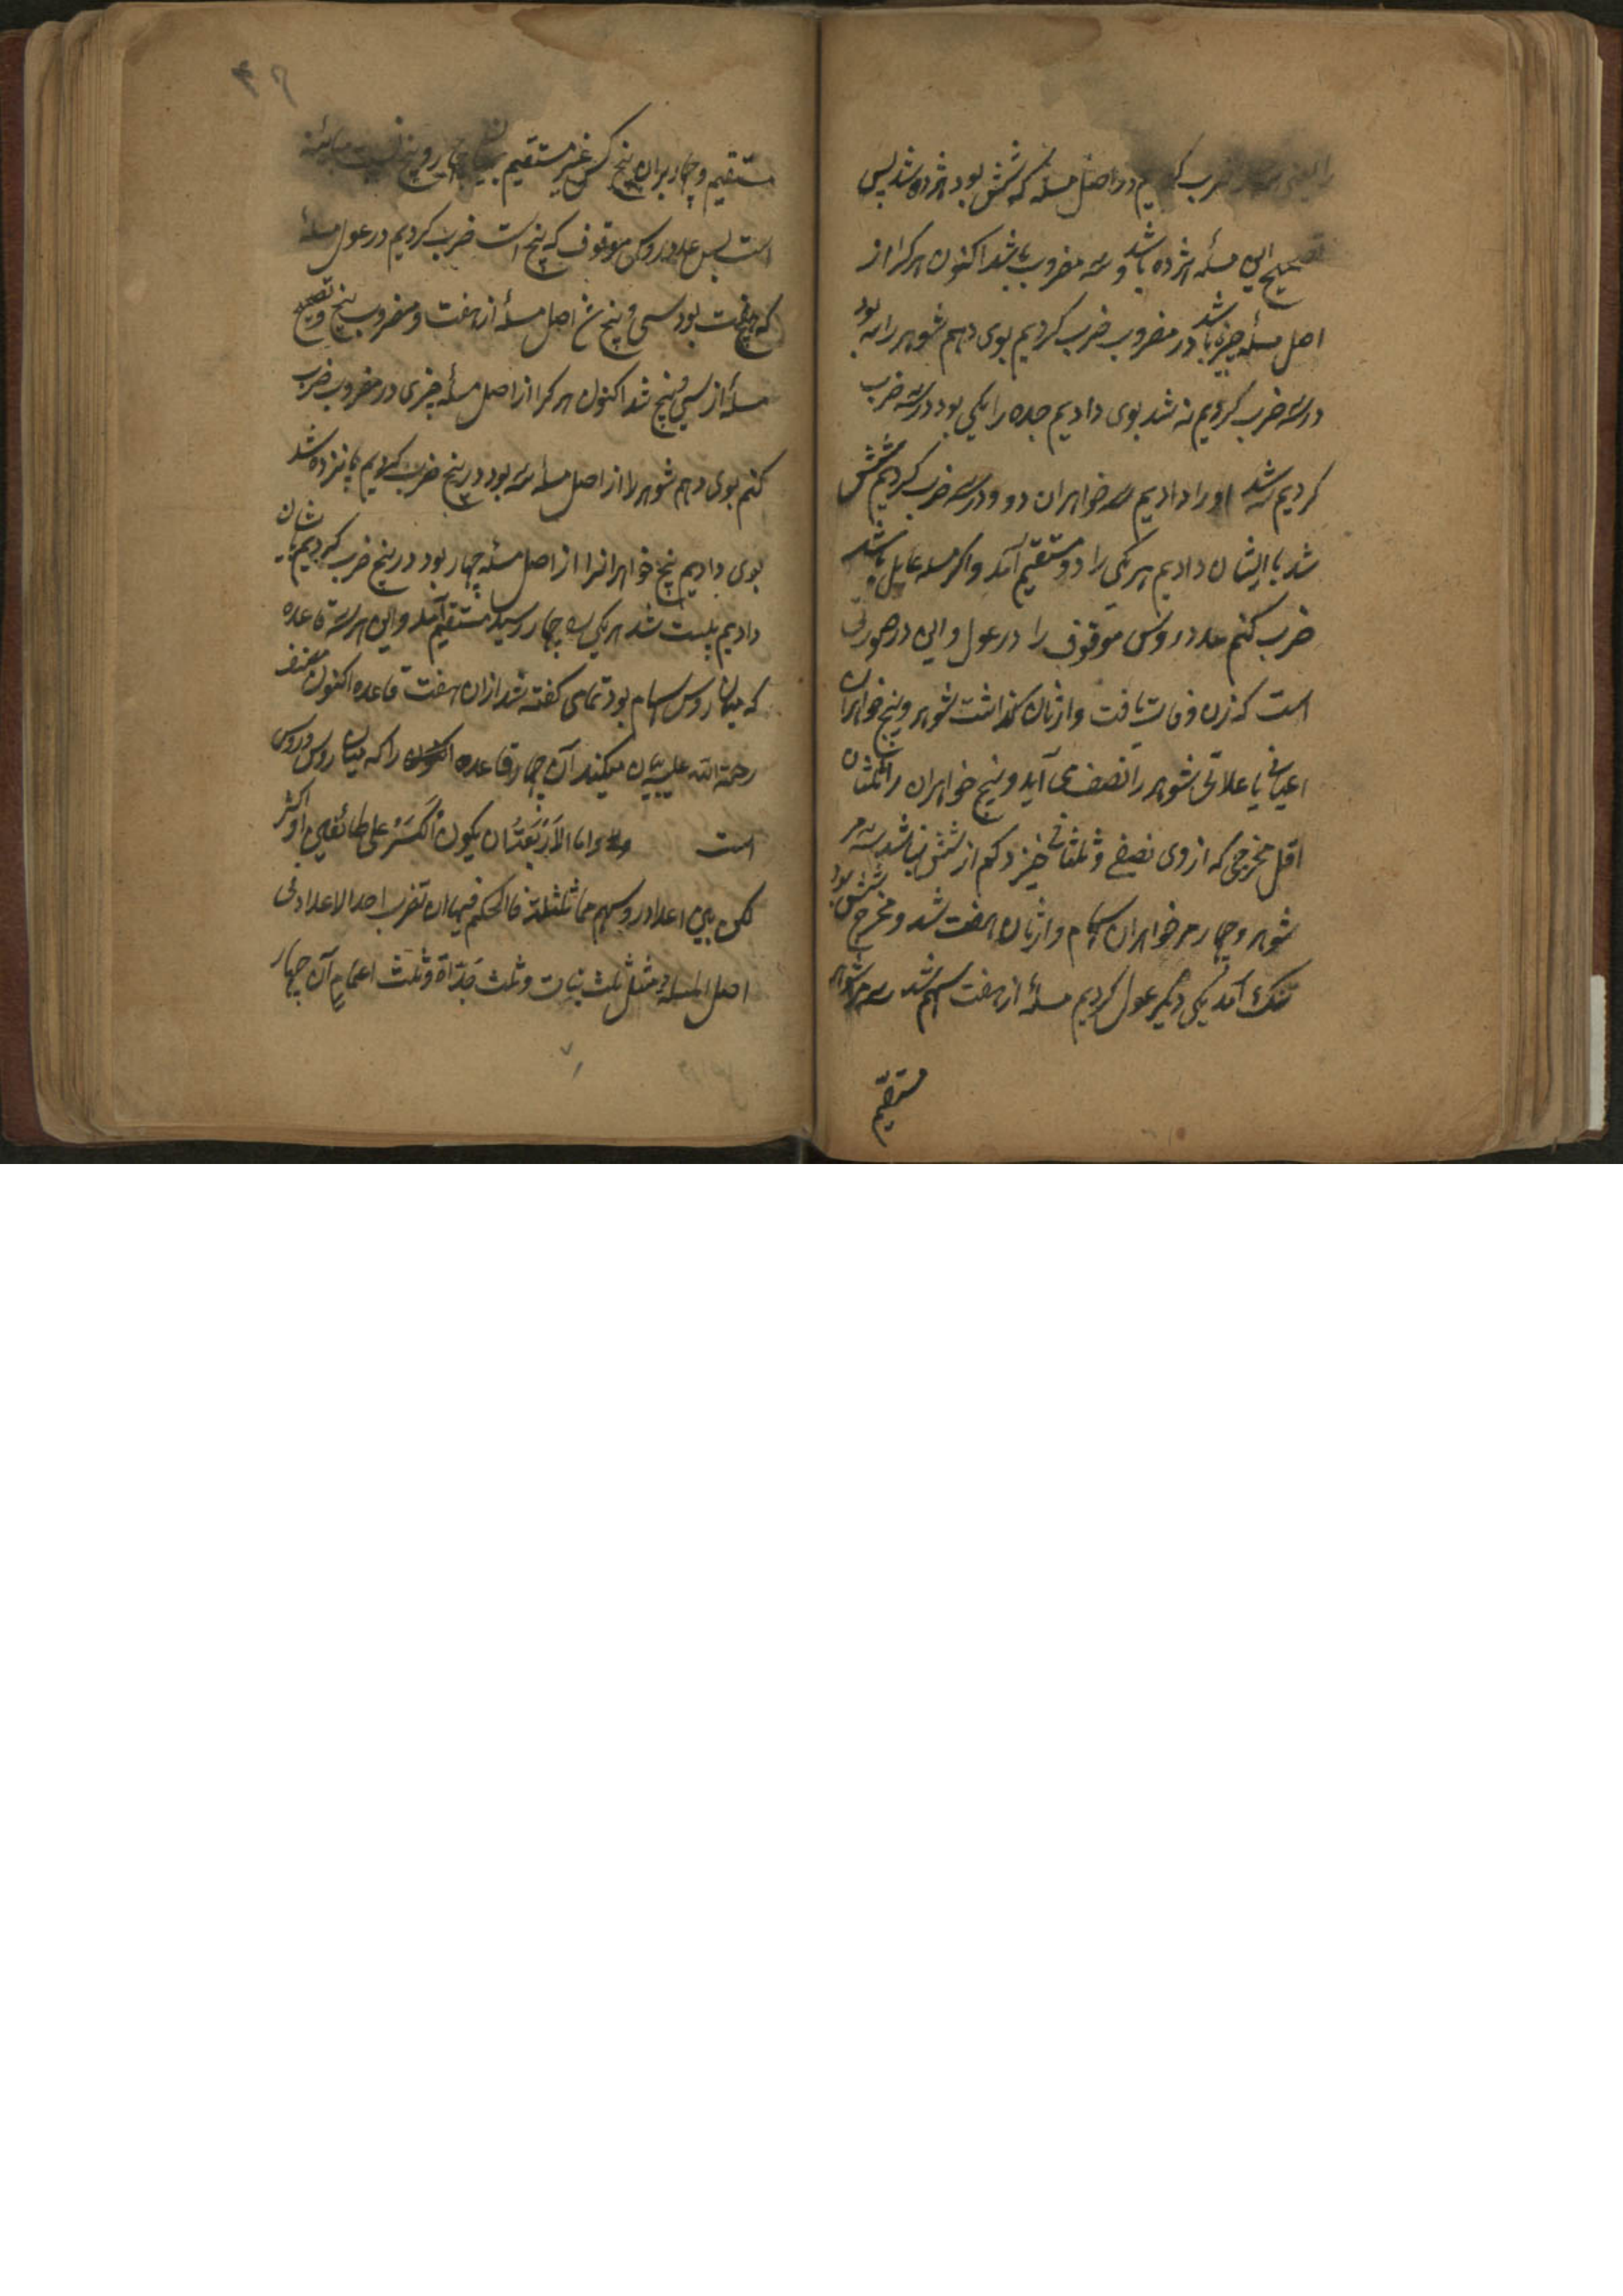 ضرب کردیم در اصل مسله که شش بود هژده شد پس
تصحیح این مسله هژده باشد و سه مضروب باشد اکنون هر کرا از
اصل مسئله چیزی باشد در مضروب ضرب کردیم بوی دهم شوهر را سه بود
در سه ضرب کردیم نه شد بوی دادیم جده را یکی بود در سه ضرب
کردیم سه شد او را دادیم سه خواهران دو و در سه ضرب کردیم شش
شد بایشان دادیم هر یکی را دو مستقیم آمد و اکر مسله عایل باشد
ضرب کنم عدد روس موقوف را در عول و این در صورتی
است که زن وفات یافت و ازیان کذاشت شوهر و پنج خواهران
اعیانی یا علاتی شوهر را نصف می آید و پنج خواهران را ثلثان
اقل مخرجی که از وی نصفی و ثلثانی خیزد کم از شش نباشد سه مر
شوهر و چهار مر خواهران سهام وازیان هفت شد و مخرج شش بود
تنک آمد یکی دیکر عول کردیم مسئله از هفت سهم شد سه مر شوهر
مستقیم
مستقیم و چهار بران پنج کس غیر مستقیم میان چهار و پنج نسبت مباینه
است پس عدد روس موقوف که پنج است ضرب کردیم در عول مسئله
که هفت بود سی و پنج شد اصل مسله از هفت و مضروب پنج و تصحیح
مسئله از سی و پنج شد اکنون هر کرا از اصل مسئله چیزی در مضروب ضرب
کنم بوی دهم شوهر را از اصل مسئله سه بود در پنج ضرب کردیم پانزده شد
بوی دادیم پنج خواهرانرا از اصل مسئله چهار بود در پنج ضرب کردیم بایشان
دادیم بیست شد هر یکی را چهار رسید مستقیم آمد و این هر سه قاعده
که میان روس سهام بود تمامی کفته شد ازان هفت قاعده اکنون مصنف
رحمة الله علیه بیان میکند آن چهار قاعده را که میان روس و روس
است واما الاربعتان یکون الکسر علی طائفین او اکثر
لکن بین اعداد روسهم مماثلثلة فالحکم فیها ان تضرب احد الاعداد فی
اصل المسله مثل ثلث بنات وثلث جدّاة وثلث اعمام آن چهار